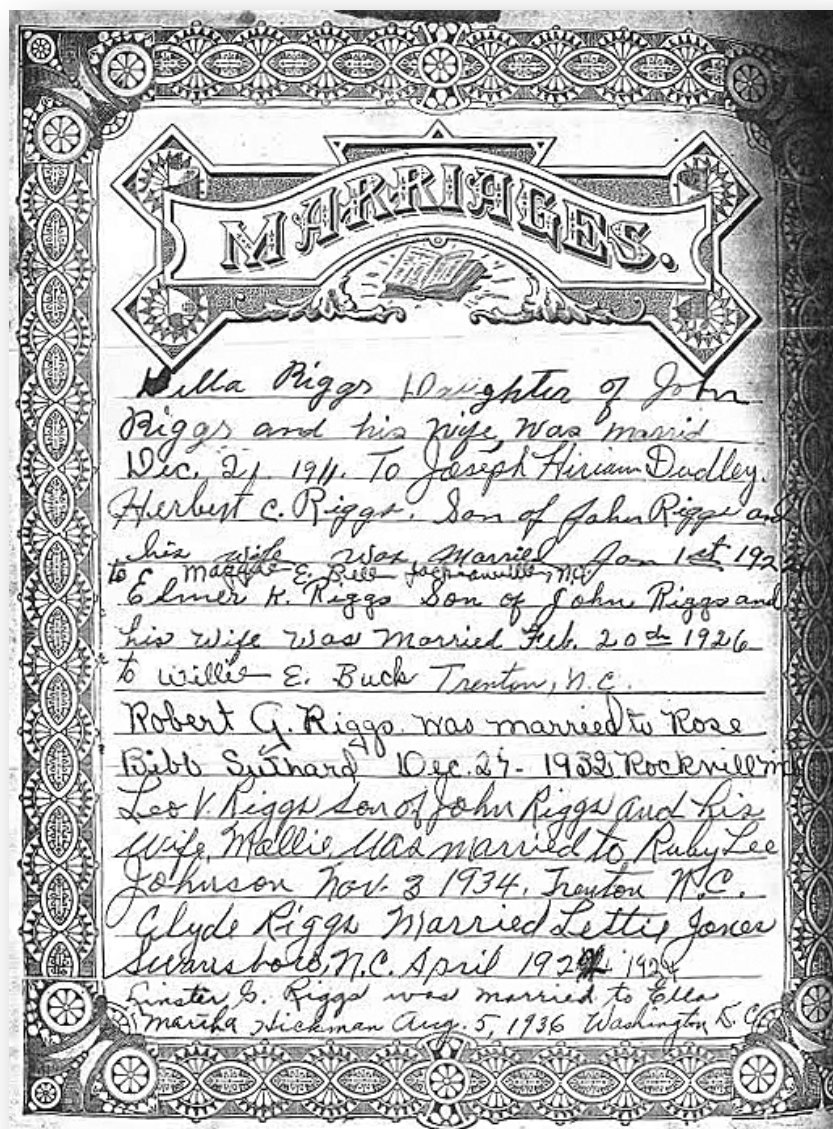 MARRIAGES.
Della Riggs Daughter of John
Riggs and his wife, was marrid
Dec. 21. 1911. To Joseph Hiriam Dudley.
Herbert C. Riggs. Son of John Riggs and
his wife was Married Jan 1st 192
to Maggie E. Bell Jacksonville, NC
Elmer K. Riggs Son of John Riggs and
his wife was Married Feb. 20th 1926
to Willie E. Buck Trenton, N.C.
Robert G. Riggs was married to Rose
Bibb Suthard Dec. 27 - 1932 Rockvill
Leo V. Riggs Son of John Riggs and his
wife, Mallie, was married to, Ruby Lee
Johnson Nov. 3 1934. Trenton N.C.
Clyde Riggs Married Lettie Jones
Swansboro, N.C. April 192 1924
Linster G. Riggs was married to Ella
Martha Hickman Aug. 5, 1936 Washington D.C.